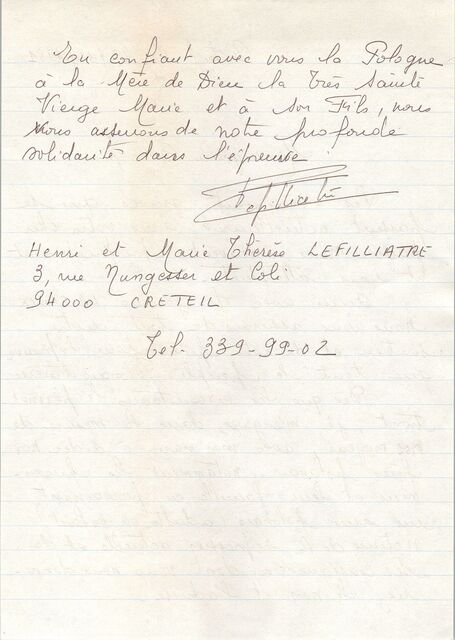 En confiant avec vous la Pologne
à la Mère de Dieu la Très Sainte
Vierge Marie et à son Fils, nous
vous assurons de notre profonde
solidarité dans l'épreuve.
Lefilliatre
Henri et Marie Thérèse LEFILLIATRE
3, rue Nungesser et Coli
94000 CRETEIL
Tel. 339-99-02